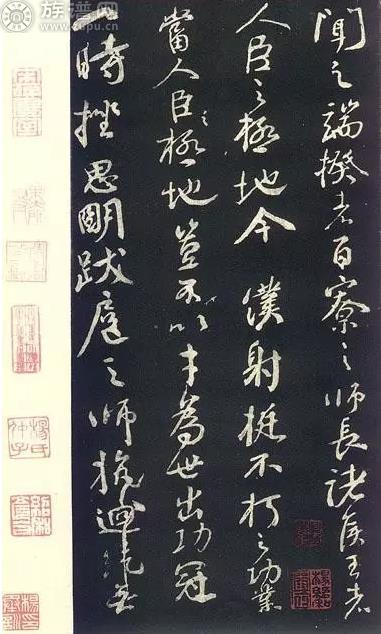 聞之端揆者百寮之師長諸侯王者
人臣之極地今僕射挺不朽之功業
當人臣極地豈不以才為世出功冠
一時挫思明跋扈之師抗迴紇無
族谱网
楊氏
仲子